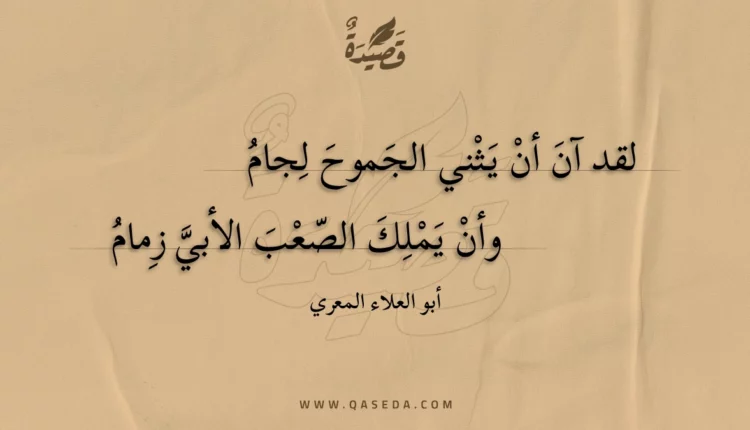 قَصِيدَةٌ
لقد آنَ أنْ يَثْني الجَموحَ لِجامُ
وأنْ يَمْلِكَ الصّعْبَ الأبيَّ زِمامُ
أبو العلاء المعري
WWW.QASEDA.COM